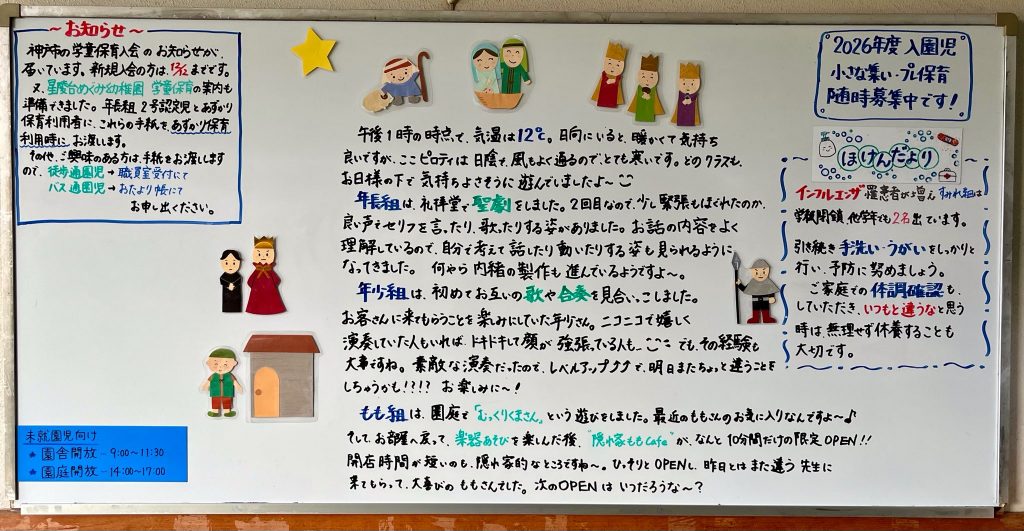 ～お知らせ～
神戸市の学童保育入会のお知らせが、
届いています。新規入会の方は、12/12までです。
又、星陵台めぐみ幼稚園 学童保育の案内も
準備できました。年長組2号認定児とあずかり
保育利用者に、これらの手紙を、あずかり保育
利用時に、お渡します。
その他、ご興味のある方は、手紙をお渡します
ので、徒歩通園児→職員室受付にて
バス通園児→おたより帳にて
お申し出ください。
午後1時の時点で、気温は12℃。日向にいると、暖かくて気持ち
良いですが、ここピロティは日陰で、風もよく通るので、とても寒いです。どのクラスも、
お日様の下で気持ちよさそうに遊んでいましたよ～
年長組は、礼拝堂で聖劇をしました。2回目なので、少し緊張もほぐれたのか、
良い声でセリフを言ったり、歌ったりする姿がありました。お話の内容をよく
理解しているので、自分で考えて話したり動いたりする姿も見られるように
なってきました。 何やら内緒の製作も進んでいるようですよ～。
年少組は、初めてお互いの歌や合奏を見合いっこしました。
お客さんに来てもらうことを楽しみにしていた年少さん。ニコニコで嬉しく
演奏していた人もいれば、ドキドキして顔が強張っている人も…でも、その経験も
大事ですね。素敵な演奏だったので、レベルアップククで、明日またちょっと違うことを
しちゃうかも!!?? お楽しみに～!
もも組は、園庭で「むっくりくまさん」という遊びをしました。最近のももさんのお気に入りなんですよ～♪
そして、お部屋へ戻って、楽器あそびを楽しんだ後、“隠れ家ももCafe”が、なんと10分間だけの限定OPEN!!
開店時間が短いのも、隠れ家的なところですね～。ひっそりとOPENし、昨日とはまた違う先生に
来てもらって、大喜びのももさんでした。次のOPENはいつだろうな～?
2026年度入園児
小さな集い・プレ保育
随時募集中です!
ほけんだより
インフルエンザ罹患者が増え、すみれ組は
学級閉鎖、他学年でも2名出ています。
引き続き手洗い・うがいをしっかりと
行い、予防に努めましょう。
ご家庭での体調確認も、
していただき、いつもと違うなと思う
時は、無理せず休養することも
大切です。
未就園児向け
★園舎開放-9:00～11:30
★園庭開放-14:00～17:00